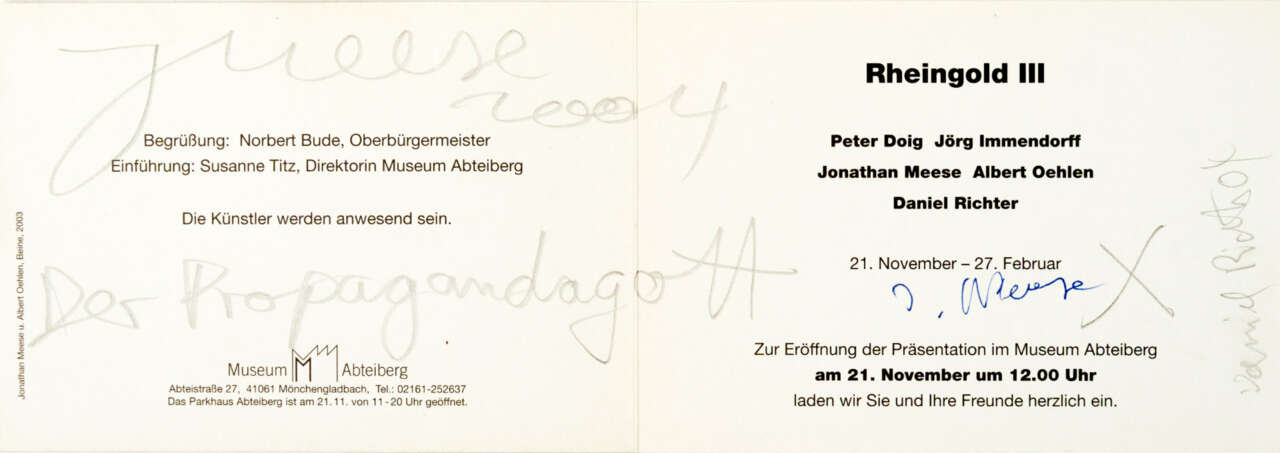 JMeese
2004
Begrüßung: Norbert Bude, Oberbürgermeister
Einführung: Susanne Titz, Direktorin Museum Abteiberg
Die Künstler werden anwesend sein.
Der Propagandagott
Museum Abteiberg
Abteistraße 27, 41061 Mönchengladbach, Tel.: 02161-252637
Das Parkhaus Abteiberg ist am 21.11. von 11-20 Uhr geöffnet.
Jonathan Meese u. Albert Oehlen, Beine, 2003
Rheingold III
Peter Doig Jörg Immendorff
Jonathan Meese Albert Oehlen
Daniel Richter
21. November – 27. Februar
J. Meese X
Zur Eröffnung der Präsentation im Museum Abteiberg
am 21. November um 12.00 Uhr
laden wir Sie und Ihre Freunde herzlich ein.
Daniel Richter